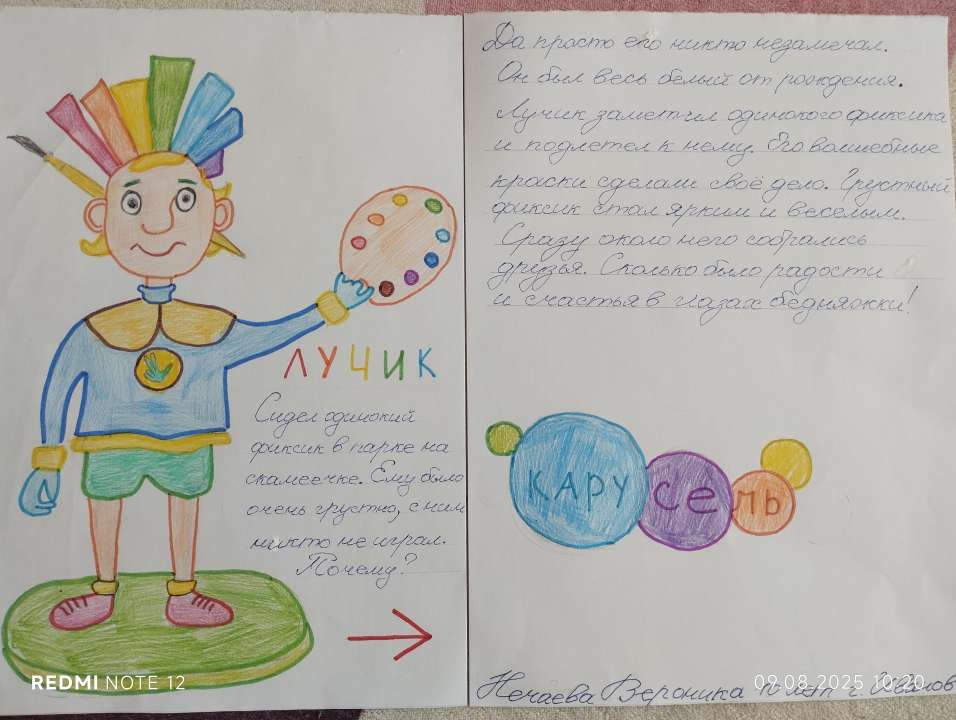 ЛУЧИК
Сидел одинокий
фиксик в парке на
скамеечке. Ему было
очень грустно, с ним
никто не играл.
Почему?
REDMI NOTE 12
Да просто его никто незамечал.
Он был весь белый от рождения.
Лучик заметил одинокого фиксика
и подлетел к нему. Его волшебные
краски сделали своё дело. Грустный
фиксик стал ярким и веселым.
Сразу около него собрались
друзья. Сколько было радости
и счастья в глазах бедняжки!
КАРУСЕЛЬ
09.08.2025 10:20
Нечаева Вероника г. Иванов